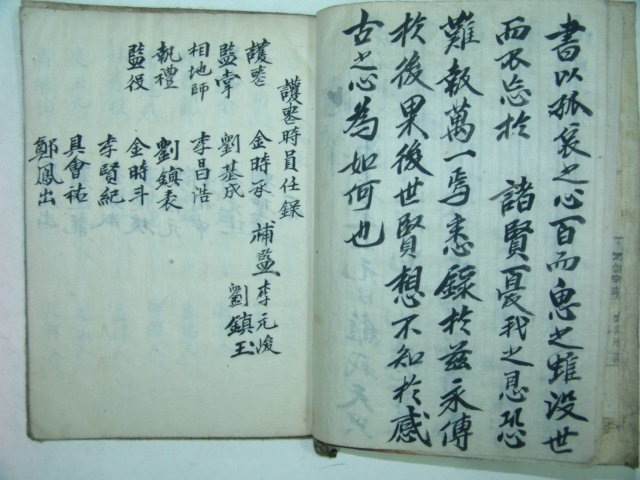 書以孤哀之心百而思之雖沒世
而不忘於 諸賢憂我之恩恐
難報萬一焉悉錄於玆永傳
於後果後世賢想不知於感
古之心為如何也
護喪時員任錄
護喪 金時承 補監 李元浚
監掌 劉基成 劉鎮玉
相地師 李昌浩
執禮 劉鎮袁
監役 金時斗
李賢紀
具會祐
鄭鳳出